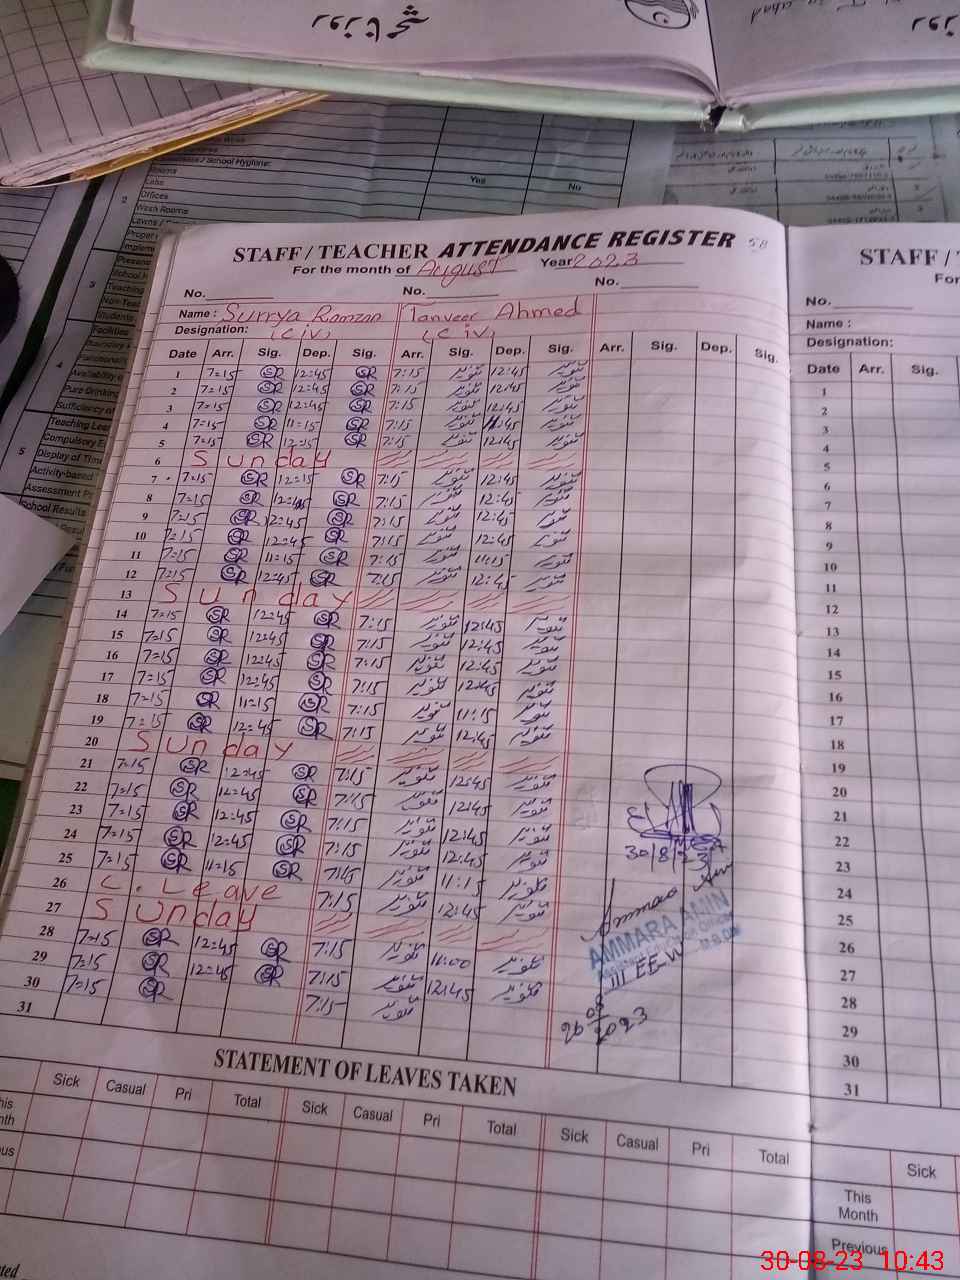 روزنامچہ
School Hygiene:
Rooms
Labs
Offices
Wash Rooms
Yes No
2
3
4
5
STAFF / TEACHER ATTENDANCE REGISTER 58
For the month of August Year 2023
No. No. No.
Name : Surrya Ramzan Tanveer Ahmed
Designation: (C iv) (C iv)
Date Arr. Sig. Dep. Sig. Arr. Sig. Dep. Sig. Arr. Sig. Dep. Sig.
1 7=15 SR 12=45 SR 7:15 تنویر 12:45 تنویر
2 7=15 SR 12=45 SR 7:15 تنویر 12:45 تنویر
3 7=15 SR 12=45 SR 7:15 تنویر 12:45 تنویر
4 7=15 SR 11=15 SR 7:15 تنویر تنویر
5 7=15 SR 12=15 SR 7:15 تنویر 12:45 تنویر
6 Sunday
7 7=15 SR 12=15 SR 7:15 تنویر 12:45 تنویر
8 7=15 SR 12=45 SR 7:15 تنویر 12:45 تنویر
9 7=15 SR 12=45 SR 7:15 تنویر 12:45 تنویر
10 7=15 SR 12=45 SR 7:15 تنویر 12:45 تنویر
11 7=15 SR 11=15 SR 7:15 تنویر 11:15 تنویر
12 7=15 SR 12=45 SR 7:15 تنویر 12:45 تنویر
13 Sunday
14 7=15 SR 12=45 SR 7:15 تنویر 12:45 تنویر
15 7=15 SR 12=45 SR 7:15 تنویر 12:45 تنویر
16 7=15 SR 12=45 SR 7:15 تنویر 12:45 تنویر
17 7=15 SR 12=45 SR 7:15 تنویر 12:45 تنویر
18 7=15 SR 11=15 SR 7:15 تنویر 11:15 تنویر
19 7=15 SR 12=45 SR 7:15 تنویر 12:45 تنویر
20 Sunday
21 7=15 SR 12=45 SR 7:15 تنویر 12:45 تنویر
22 7=15 SR 12=45 SR 7:15 تنویر 12:45 تنویر
23 7=15 SR 12=45 SR 7:15 تنویر 12:45 تنویر
24 7=15 SR 12=45 SR 7:15 تنویر 12:45 تنویر
25 7=15 SR 11=15 SR 7:15 تنویر 11:15 تنویر
26 C. Leave 7:15 تنویر 12:45 تنویر
27 Sunday
28 7=15 SR 12=45 SR 7:15 تنویر 11:00 تنویر
29 7=15 SR 12=45 SR 7:15 تنویر 12:45 تنویر
30 7=15 SR 7:15 تنویر
31
30/8/23
Ammara
AMMARA AMIN
III EE-W
26 08 2023
STATEMENT OF LEAVES TAKEN
Sick Casual Pri Total Sick Casual Pri Total Sick Casual Pri Total
STAFF / T
For
No.
Name :
Designation:
Date Arr. Sig.
1
2
3
4
5
6
7
8
9
10
11
12
13
14
15
16
17
18
19
20
21
22
23
24
25
26
27
28
29
30
31
Sick
This
Month
Previous
30-08-23 10:43